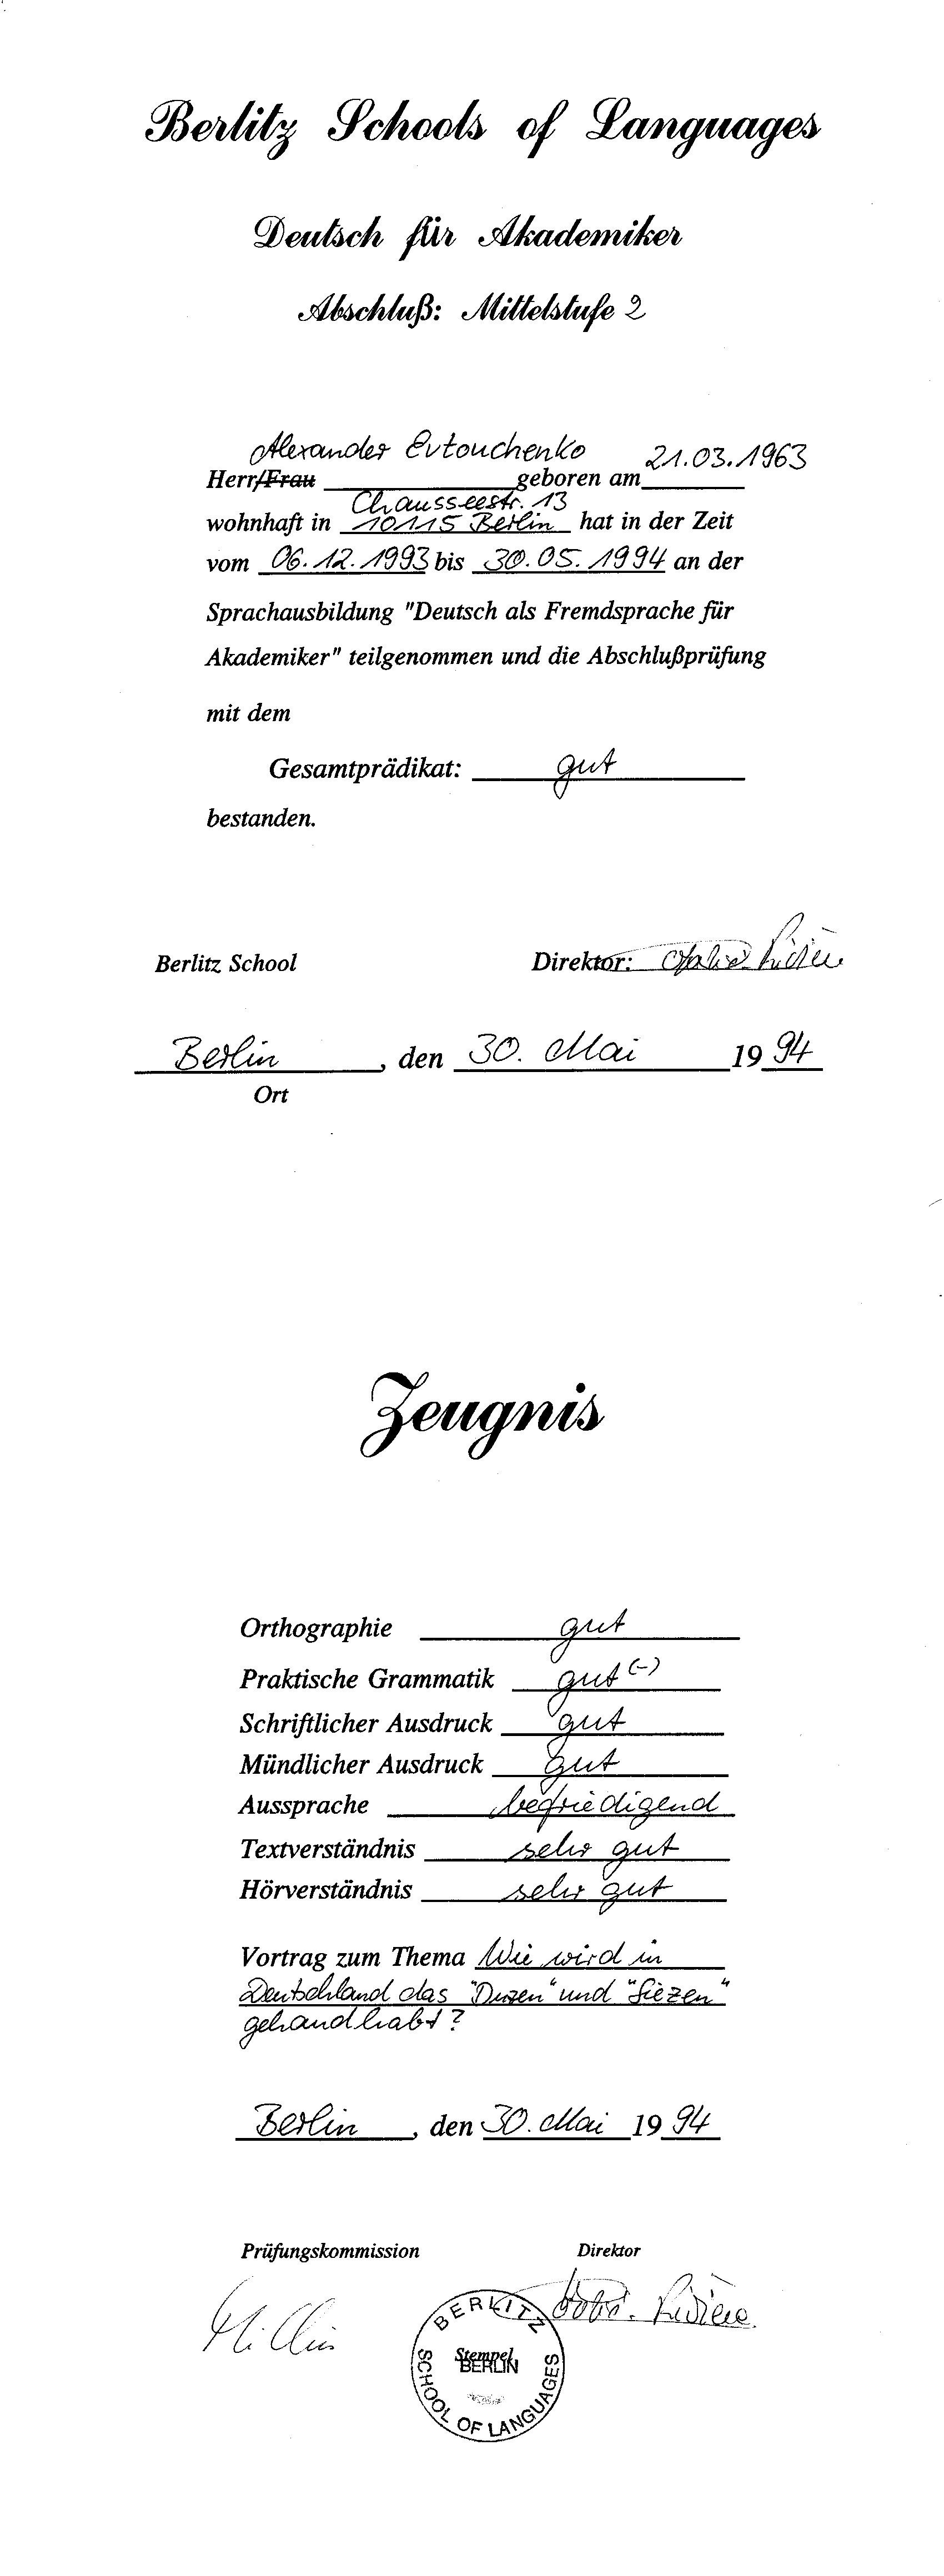 Berlitz Schools of Languages
Deutsch für Akademiker
Abschluß: Mittelstufe 2
Alexander Evtouchenko 21.03.1963
Herr/Frau geboren am
Chausseestr. 13
wohnhaft in 10115 Berlin hat in der Zeit
vom 06.12.1993 bis 30.05.1994 an der
Sprachausbildung "Deutsch als Fremdsprache für
Akademiker" teilgenommen und die Abschlußprüfung
mit dem
Gesamtprädikat: gut
bestanden.
Berlitz School Direktor:
Berlin, den 30. Mai 1994
Ort
Zeugnis
Orthographie gut
Praktische Grammatik gut (-)
Schriftlicher Ausdruck gut
Mündlicher Ausdruck gut
Aussprache befriedigend
Textverständnis sehr gut
Hörverständnis sehr gut
Vortrag zum Thema Wie wird in
Deutschland das "Duzen" und "Siezen"
gehandhabt?
Berlin, den 30. Mai 1994
Prüfungskommission Direktor
BERLITZ
Stempel
BERLIN
SCHOOL OF LANGUAGES